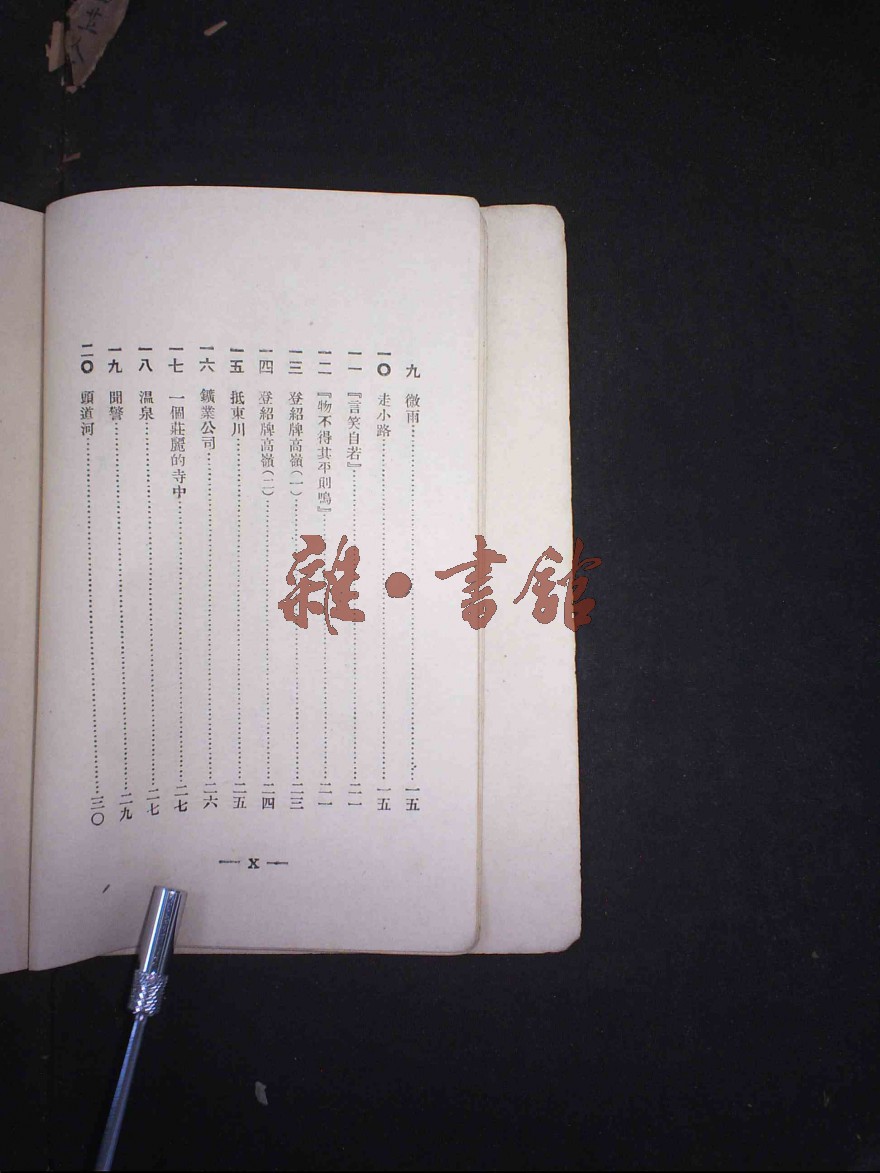 九　微雨……一五
一〇　走小路……一五
一一　『言笑自若』……二一
一二　『物不得其平則鳴』……二一
一三　登紹牌高嶺（一）……二三
一四　登紹牌高嶺（二）……二四
一五　抵東川……二五
一六　鑛業公司……二六
一七　一個莊麗的寺中……二七
一八　溫泉……二七
一九　聞警……二九
二〇　頭道河……三〇
— X —
雜·書館